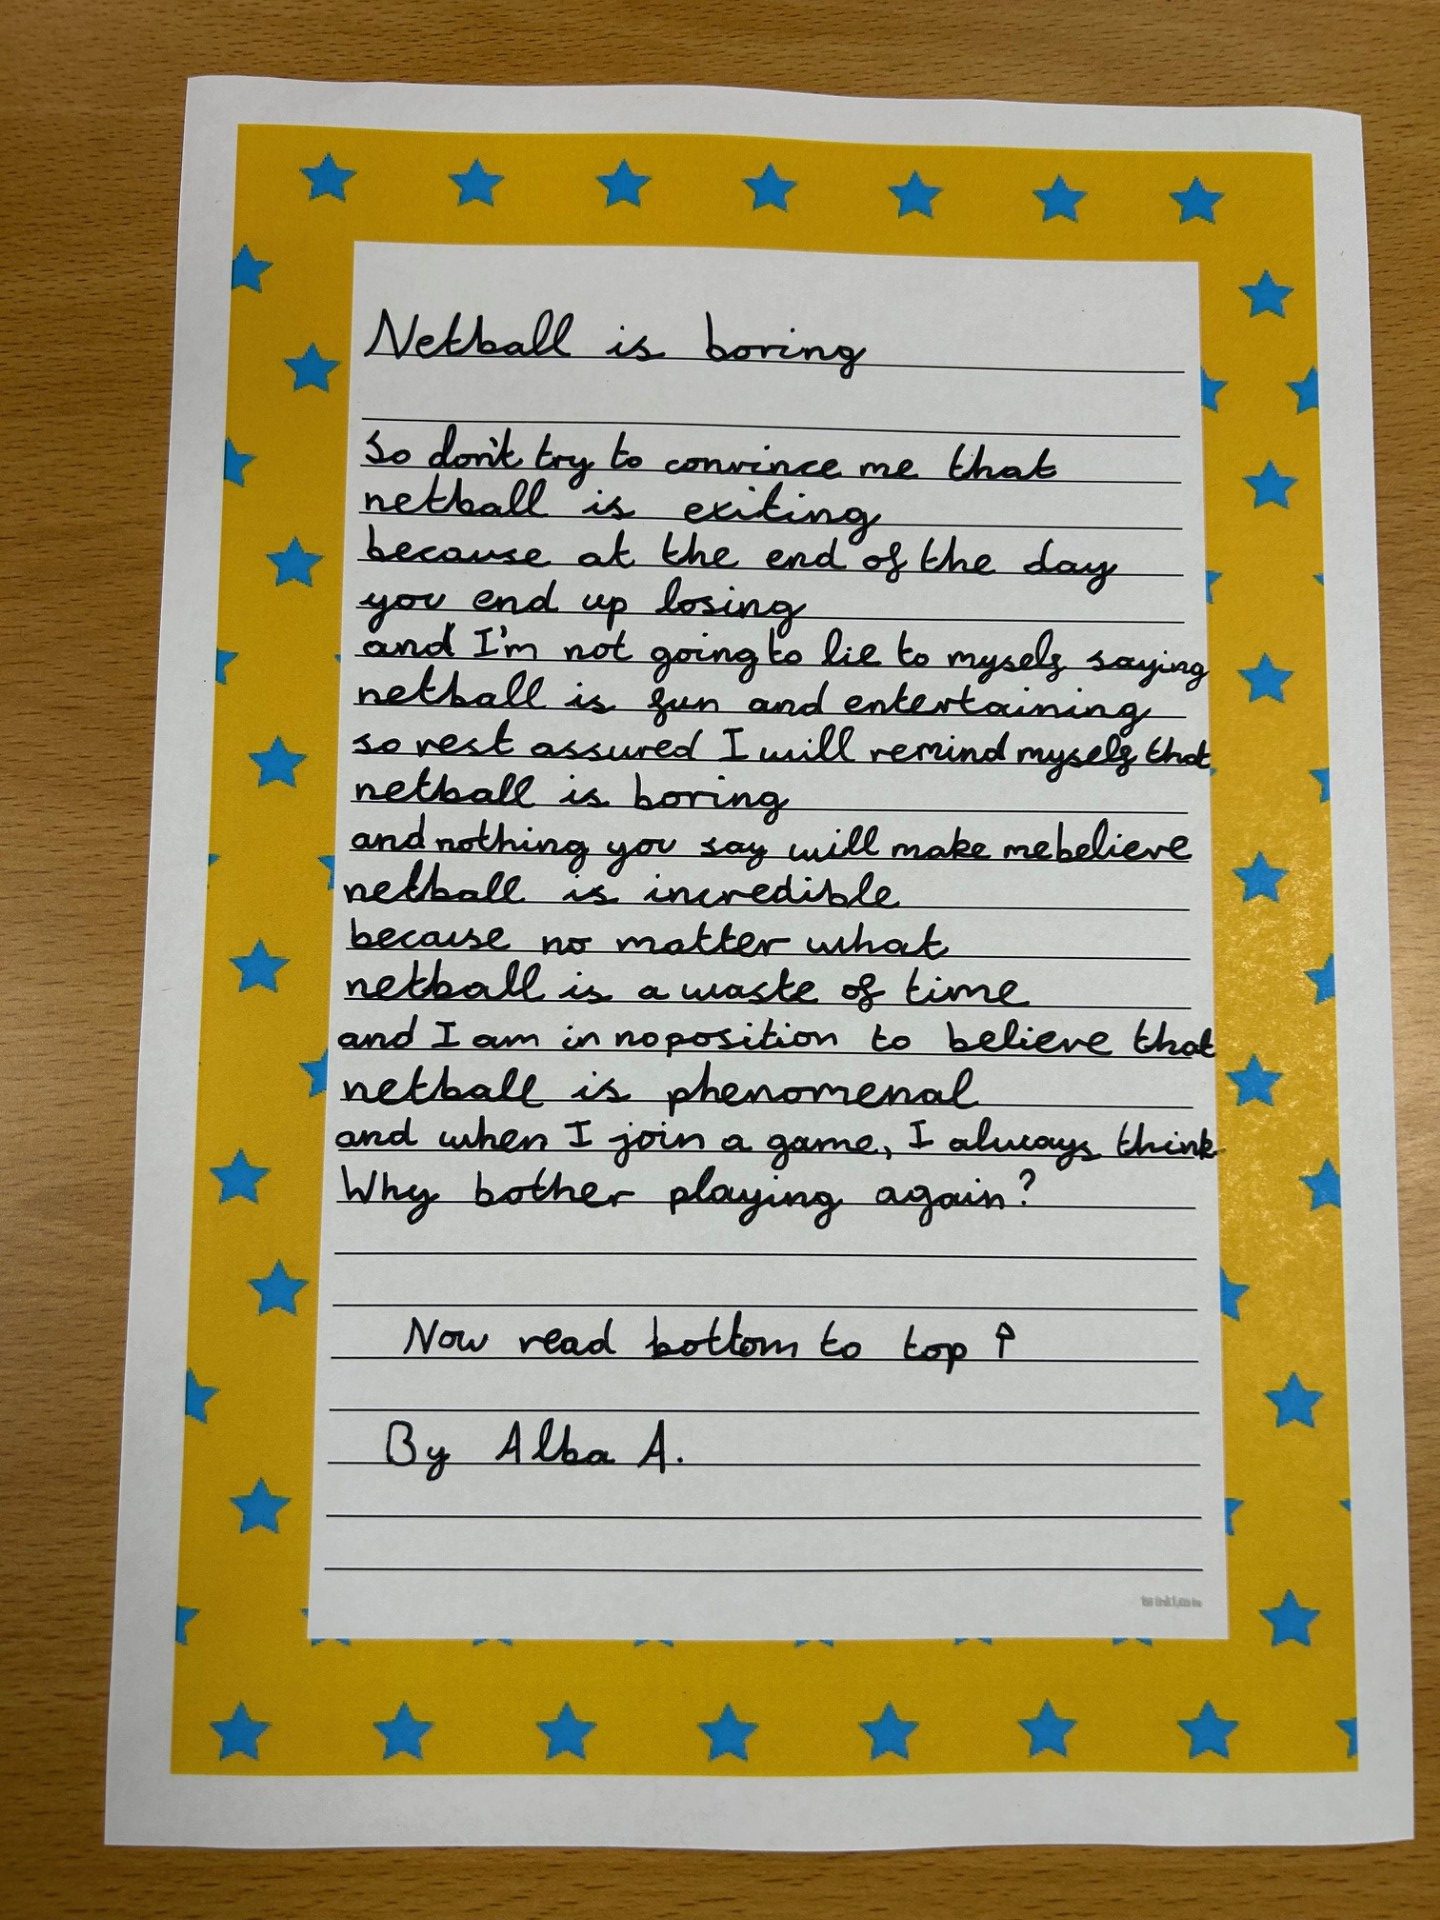 Netball is boring
So don't try to convince me that
netball is exiting
because at the end of the day
you end up losing
and I'm not going to lie to myself saying
netball is fun and entertaining
so rest assured I will remind myself that
netball is boring
and nothing you say will make me believe
netball is incredible
because no matter what
netball is a waste of time
and I am in no position to believe that
netball is phenomenal
and when I join a game, I always think
Why bother playing again?
Now read bottom to top ↑
By Alba A.